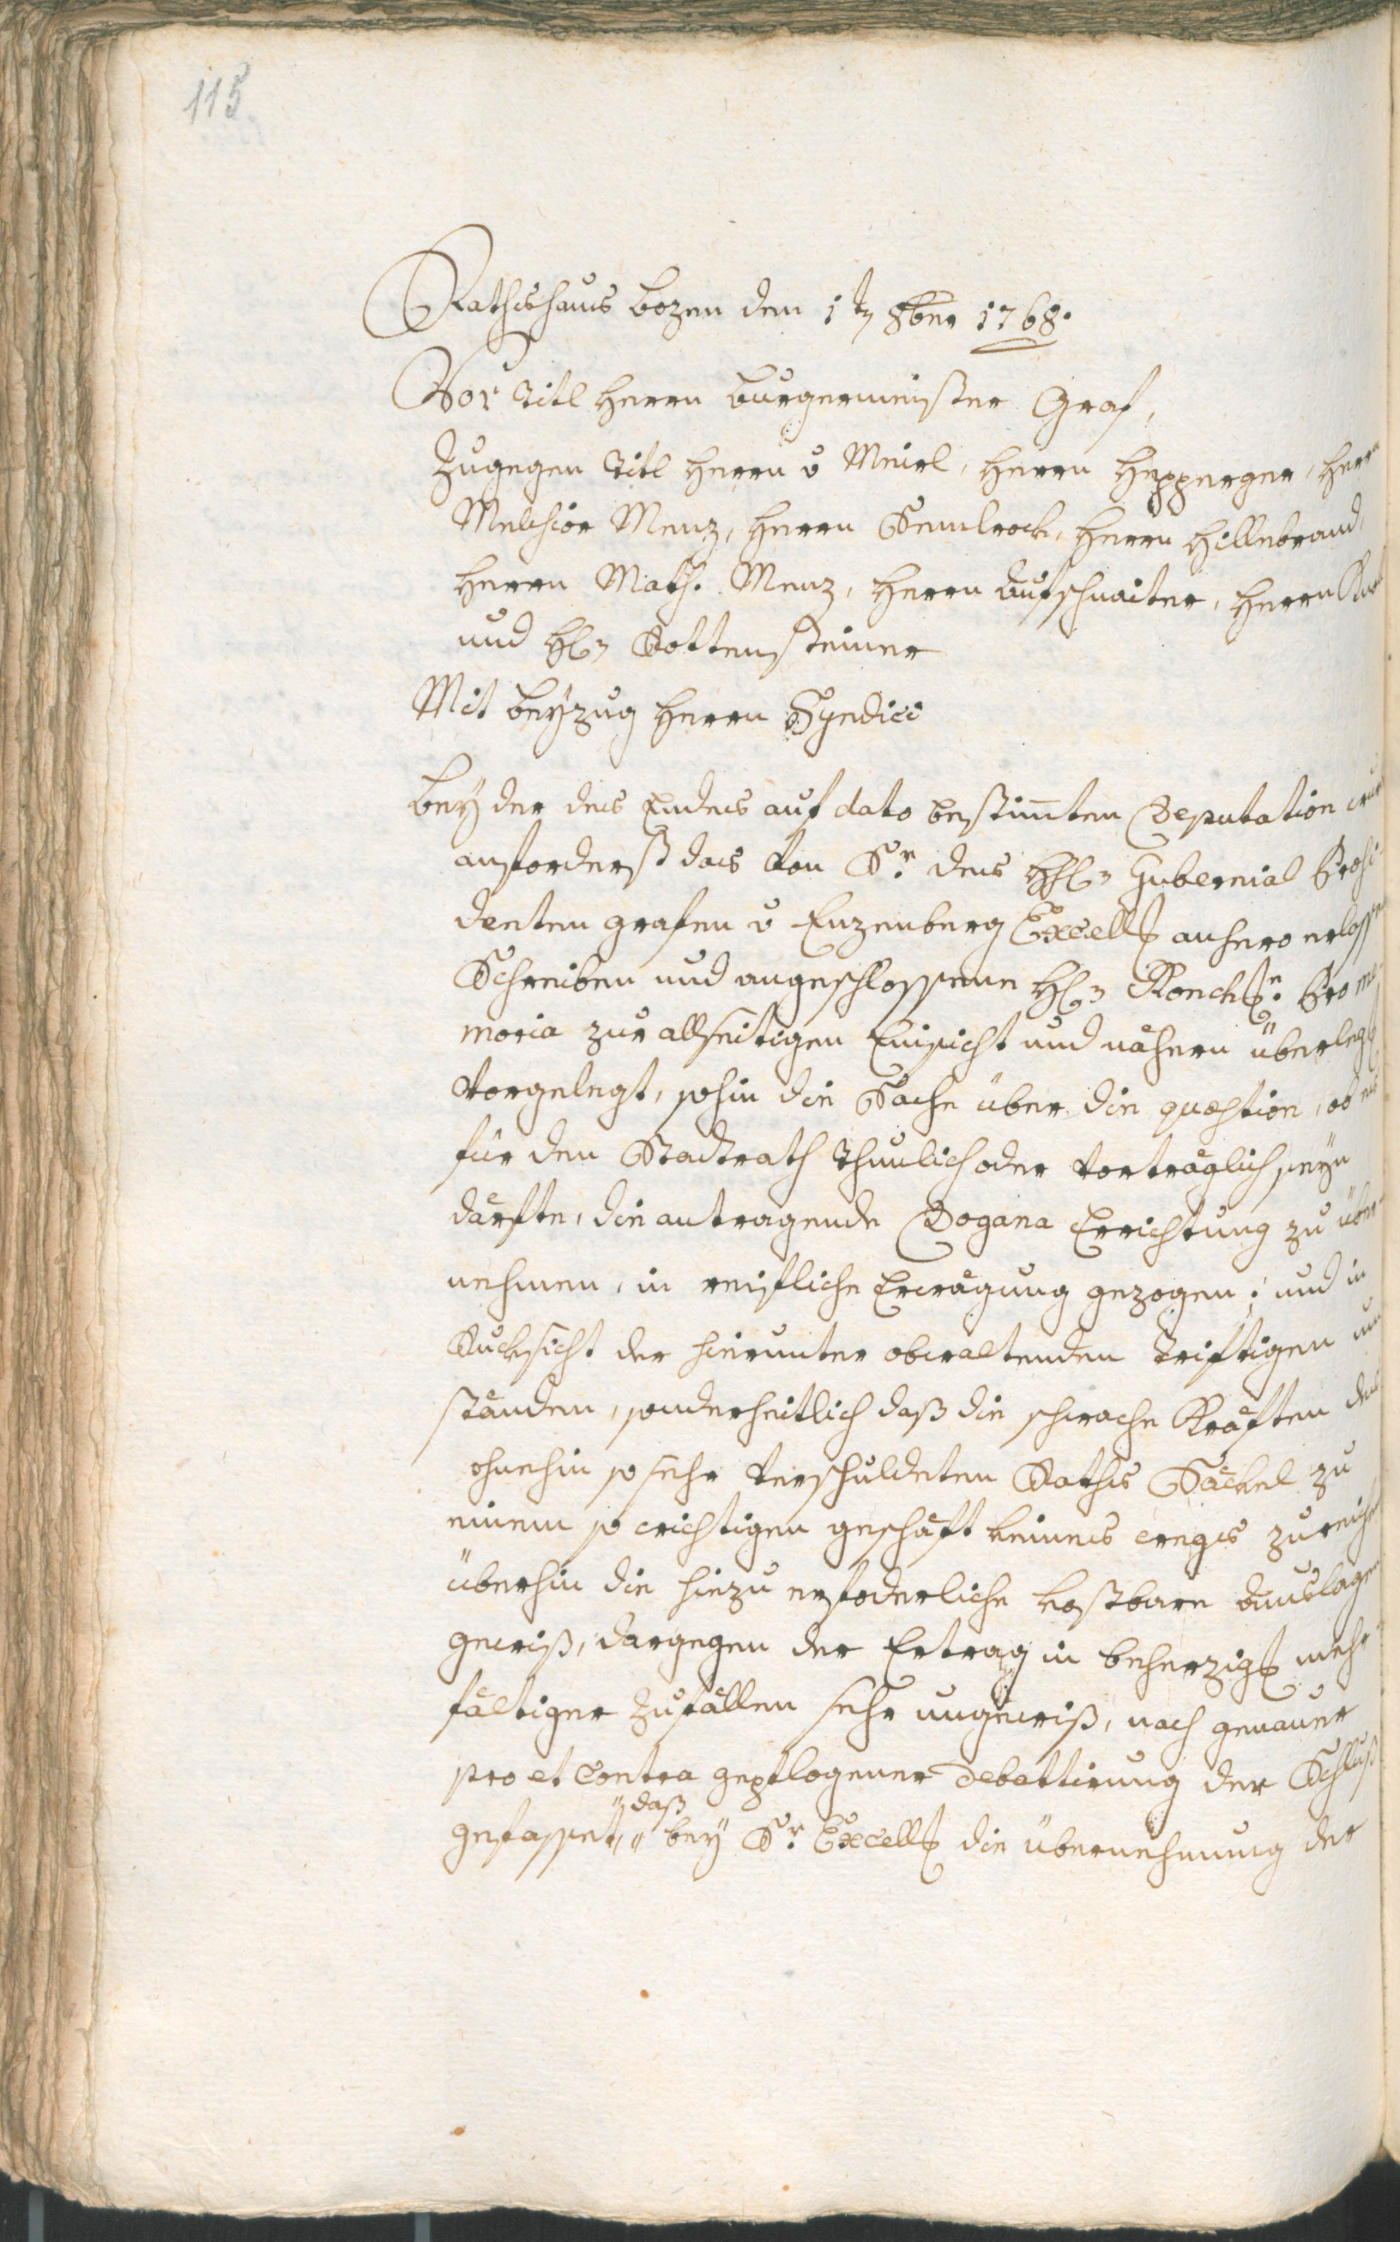 115
Rathshaus Bozen den 1t 8ber 1768.
Vor Titl Herrn Burgermeister Graf,
Zugegen Titl Herrn v Meirl, Herrn Hepperger, Herrn
Melchior Menz, Herrn Semlrock, Herrn Hillebrand,
Herrn Math. Menz, Herrn Aufschnaiter, Herrn
und H. Rottensteiner
Mit beyzug Herrn Syndici
Bey der des Endes auf dato bestimten Deputation
anforderst das von Sr. des H. Gubernial Presi
denten grafen v Enzenberg Excell. anhero erlassene
Schreiben und angeschlossene H. Ronch. Pro me
moria zur allseitigen Einsicht und nähern überleg.
vorgelegt, sohin die Sache über die quæstion, ob es
für den Stadtrath thunlich oder vorträglich seyn
därfte, die antragende Dogana Errichtung zu über
nehmen, in reifliche Erwägung gezogen; und in
Rucksicht der hierunter obwaltenden triftigen um
ständen, sonderheitlich daß die schwache Kräften des
ohnehin so sehr verschuldeten Raths Säckel zu
einem so wichtigen geschäft keines wegs zureichen
überhin die hiezu erforderliche kostbare auslagen
gewiß, dargegen der Ertrag in beherzig. mehr
fältiger Zufällen sehr ungewiß, nach genauer
pro et contra gepflogener Debattirung der Schluß
gefasset, daß bey Sr. Excell. die übernehmung der